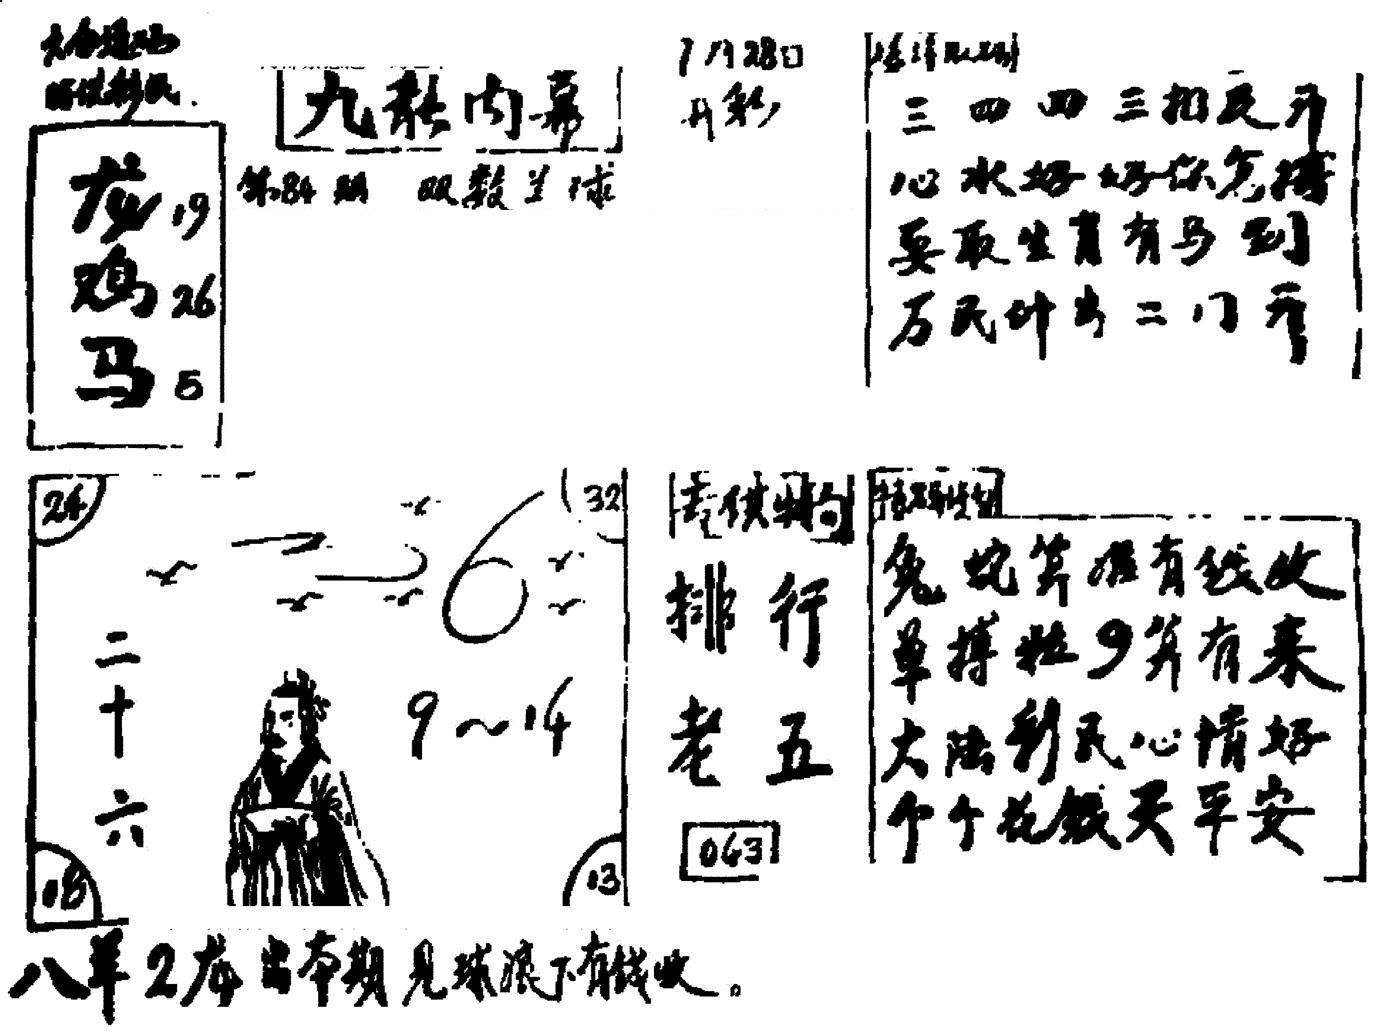 九龙内幕
7月28日
开彩
第84期 双数兰球
龙 19
鸡 26
马 5
三四四三相反开
心水好好你怎搏
要取生肖有马到
万民计出二门开
24
32
二十六
9～14
18
13
排行
老五
063
兔蛇算准有钱收
单搏粒9算有来
大陆彩民心情好
个个花钱买平安
八羊2龙出本期 见球浪下有钱收。